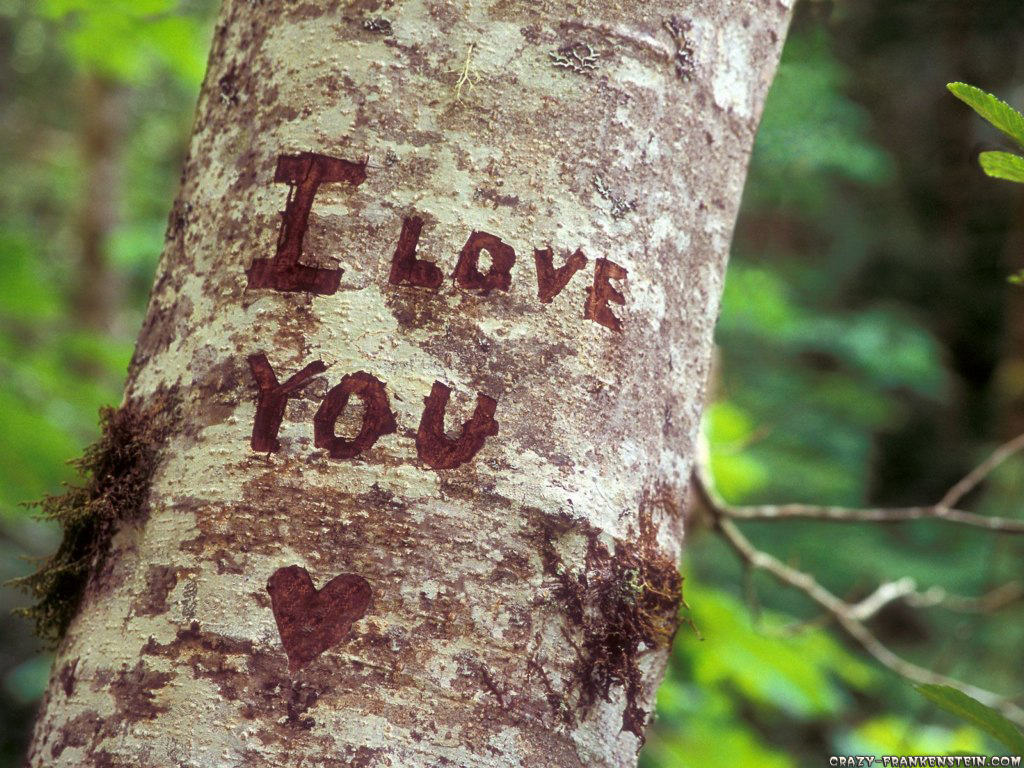 I LOVE
YOU
CRAZY-FRANKENSTEIN.COM